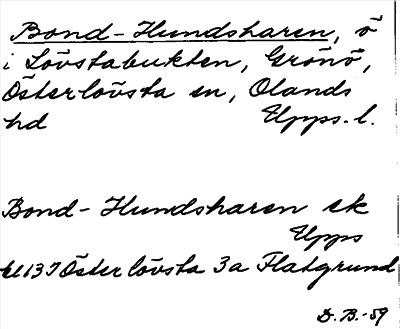 Bond-Hundsharen, ö
i Lövstabukten, Grönö,
Österlövsta sn, Olands
hd Upps. l.
Bond-Hundsharen ek
Upps
bl 137 Österlövsta 3a Flatgrund
D. B. -59